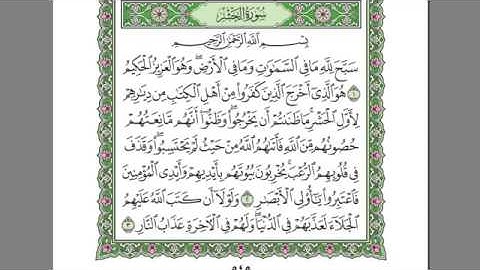 سُورَةُ الحَشْرِ
بِسْمِ اللَّهِ الرَّحْمَٰنِ الرَّحِيمِ
سَبَّحَ لِلَّهِ مَا فِي السَّمَٰوَٰتِ وَمَا فِي الْأَرْضِ ۖ وَهُوَ الْعَزِيزُ الْحَكِيمُ
۝١ هُوَ الَّذِي أَخْرَجَ الَّذِينَ كَفَرُوا مِنْ أَهْلِ الْكِتَٰبِ مِن دِيَٰرِهِمْ
لِأَوَّلِ الْحَشْرِ ۚ مَا ظَنَنتُمْ أَن يَخْرُجُوا ۖ وَظَنُّوا أَنَّهُم مَّانِعَتُهُمْ
حُصُونُهُم مِّنَ اللَّهِ فَأَتَىٰهُمُ اللَّهُ مِنْ حَيْثُ لَمْ يَحْتَسِبُوا ۖ وَقَذَفَ
فِي قُلُوبِهِمُ الرُّعْبَ ۚ يُخْرِبُونَ بُيُوتَهُم بِأَيْدِيهِمْ وَأَيْدِي الْمُؤْمِنِينَ
فَاعْتَبِرُوا يَٰٓأُولِي الْأَبْصَٰرِ ۝٢ وَلَوْلَا أَن كَتَبَ اللَّهُ عَلَيْهِمُ
الْجَلَاءَ لَعَذَّبَهُمْ فِي الدُّنْيَا ۖ وَلَهُمْ فِي الْآخِرَةِ عَذَابُ النَّارِ ۝٣
٥٤٥